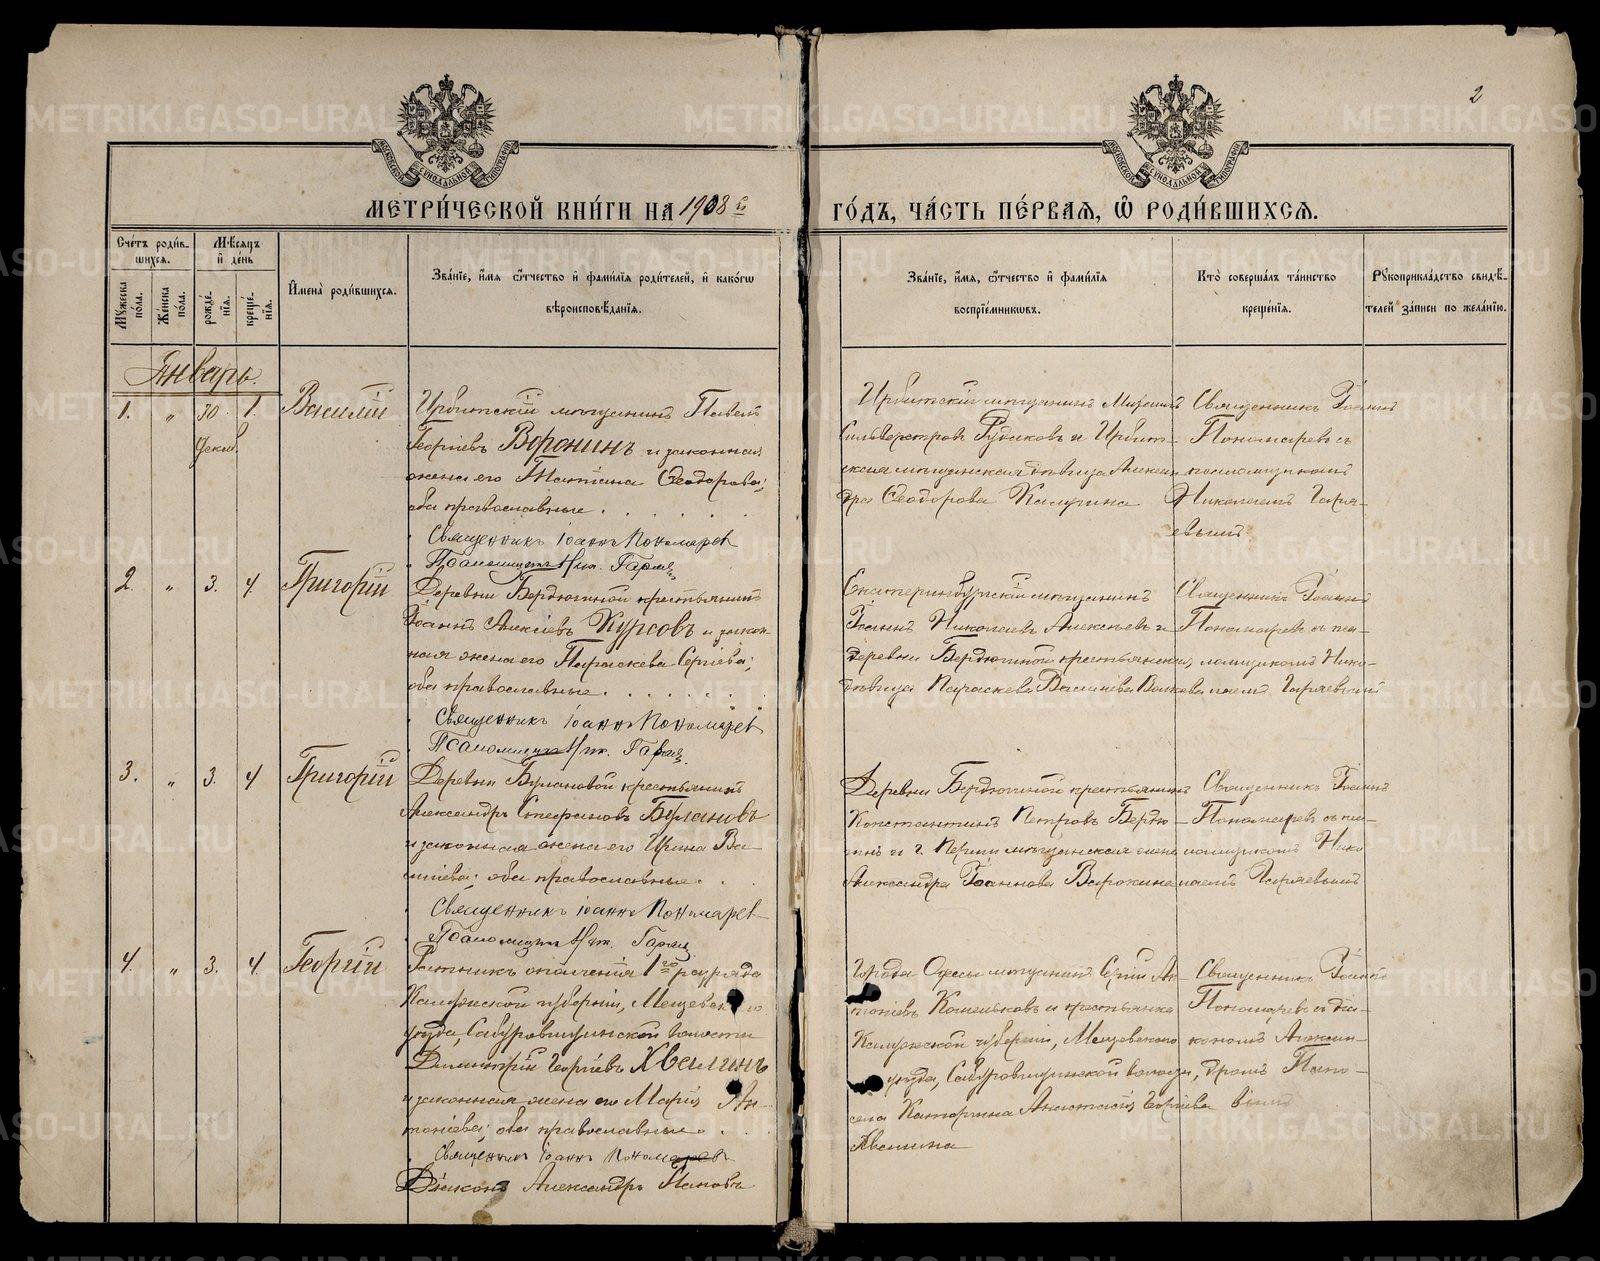 2
МЕТРИ́ЧЕСКОЙ КНИ́ГИ НА 1908 й
ГО́ДЪ, ЧА́СТЬ ПЕ́РВАЯ, Ѽ РОДИ́ВШИХСЯ.
Сче́тъ роди́в-
шихся.
Мꙋ́жеска
по́ла.
Же́нска
по́ла.
Мѣ́сяцъ
и҆ де́нь
рожде́-
нїя.
креще́-
нїя.
И҆мена̀ роди́вшихся.
Зва́нїе, и҆́мя ѻ҆́тчество и҆ фами́лїя роди́телей, и҆ како́гѡ
вѣроисповѣ́данїя.
Зва́нїе, и҆́мя, ѻ҆́тчество и҆ фами́лїя
воспрїе́мникѡвъ.
Кто̀ соверша́лъ та́инство
креще́нїя.
Рꙋкоприкла́дство свидѣ́-
телей за́писи по жела́нїю.
Январь.
1. " 30 1. Василій
декаб.
Ирбитскій мѣщанинъ Павелъ
Георгіевъ Воронинъ и законная
жена его Татіана Ѳеодорова;
оба православные.
Священникъ Іоаннъ Пономарев
Псаломщикъ Ник. Гаряев
Ирбитскій мѣщанинъ Михаилъ
Сильверстровъ Рудаковъ и Ирбит-
ская мѣщанская дѣвица Алексан-
дра Ѳеодорова Калугина
Священникъ Іоаннъ
Пономаревъ съ
псаломщикомъ
Николаемъ Гаря-
евымъ
2. " 3. 4 Григорій
Деревни Бердюгиной крестьянинъ
Іоаннъ Алексіевъ Курсовъ и закон-
ная жена его Параскева Сергіева;
оба православные.
Священникъ Іоаннъ Пономарев
Псаломщикъ Ник. Гаряев
Екатеринбургскій мѣщанинъ
Іоаннъ Николаевъ Алексѣевъ и
деревни Бердюгиной крестьянская
дѣвица Параскева Васильева Волкова
Священникъ Іоаннъ
Пономаревъ съ пса-
ломщикомъ Нико-
лаемъ Гаряевымъ
3. " 3. 4 Григорій
Деревни Булановой крестьянинъ
Александръ Стефановъ Булановъ
и законная жена его Ирина Ва-
силіева; оба православные.
Священникъ Іоаннъ Пономарев
Псаломщикъ Ник. Гаряев
Деревни Бердюгиной крестьянинъ
Константинъ Петровъ Бердю-
гинъ и г. Перми мѣщанская жена
Александра Іоаннова Ворожина
Священникъ Іоаннъ
Пономаревъ съ пса-
ломщикомъ Нико
лаемъ Гаряевымъ
4. " 3. 4. Георгій
Ратникъ ополченія 1го разряда
Калужской губерніи, Мещевскаго
уѣзда, Сабуровщинской волости
Димитрій Георгіевъ Хвалинъ
и законная жена его Марія Ан-
тоніева; оба православные.
Священникъ Іоаннъ Пономаревъ
Діаконъ Александръ Паповъ
Города Одессы мѣщанинъ Сергій Ан-
тоніевъ Кошельковъ и крестьянка
Калужской губерніи, Мещевскаго
уѣзда, Сабуровщинской волости,
села Анастасія Георгіева
Хвалина
Священникъ Іоаннъ
Пономаревъ съ діа-
кономъ Алексан-
дромъ Папо-
вымъ